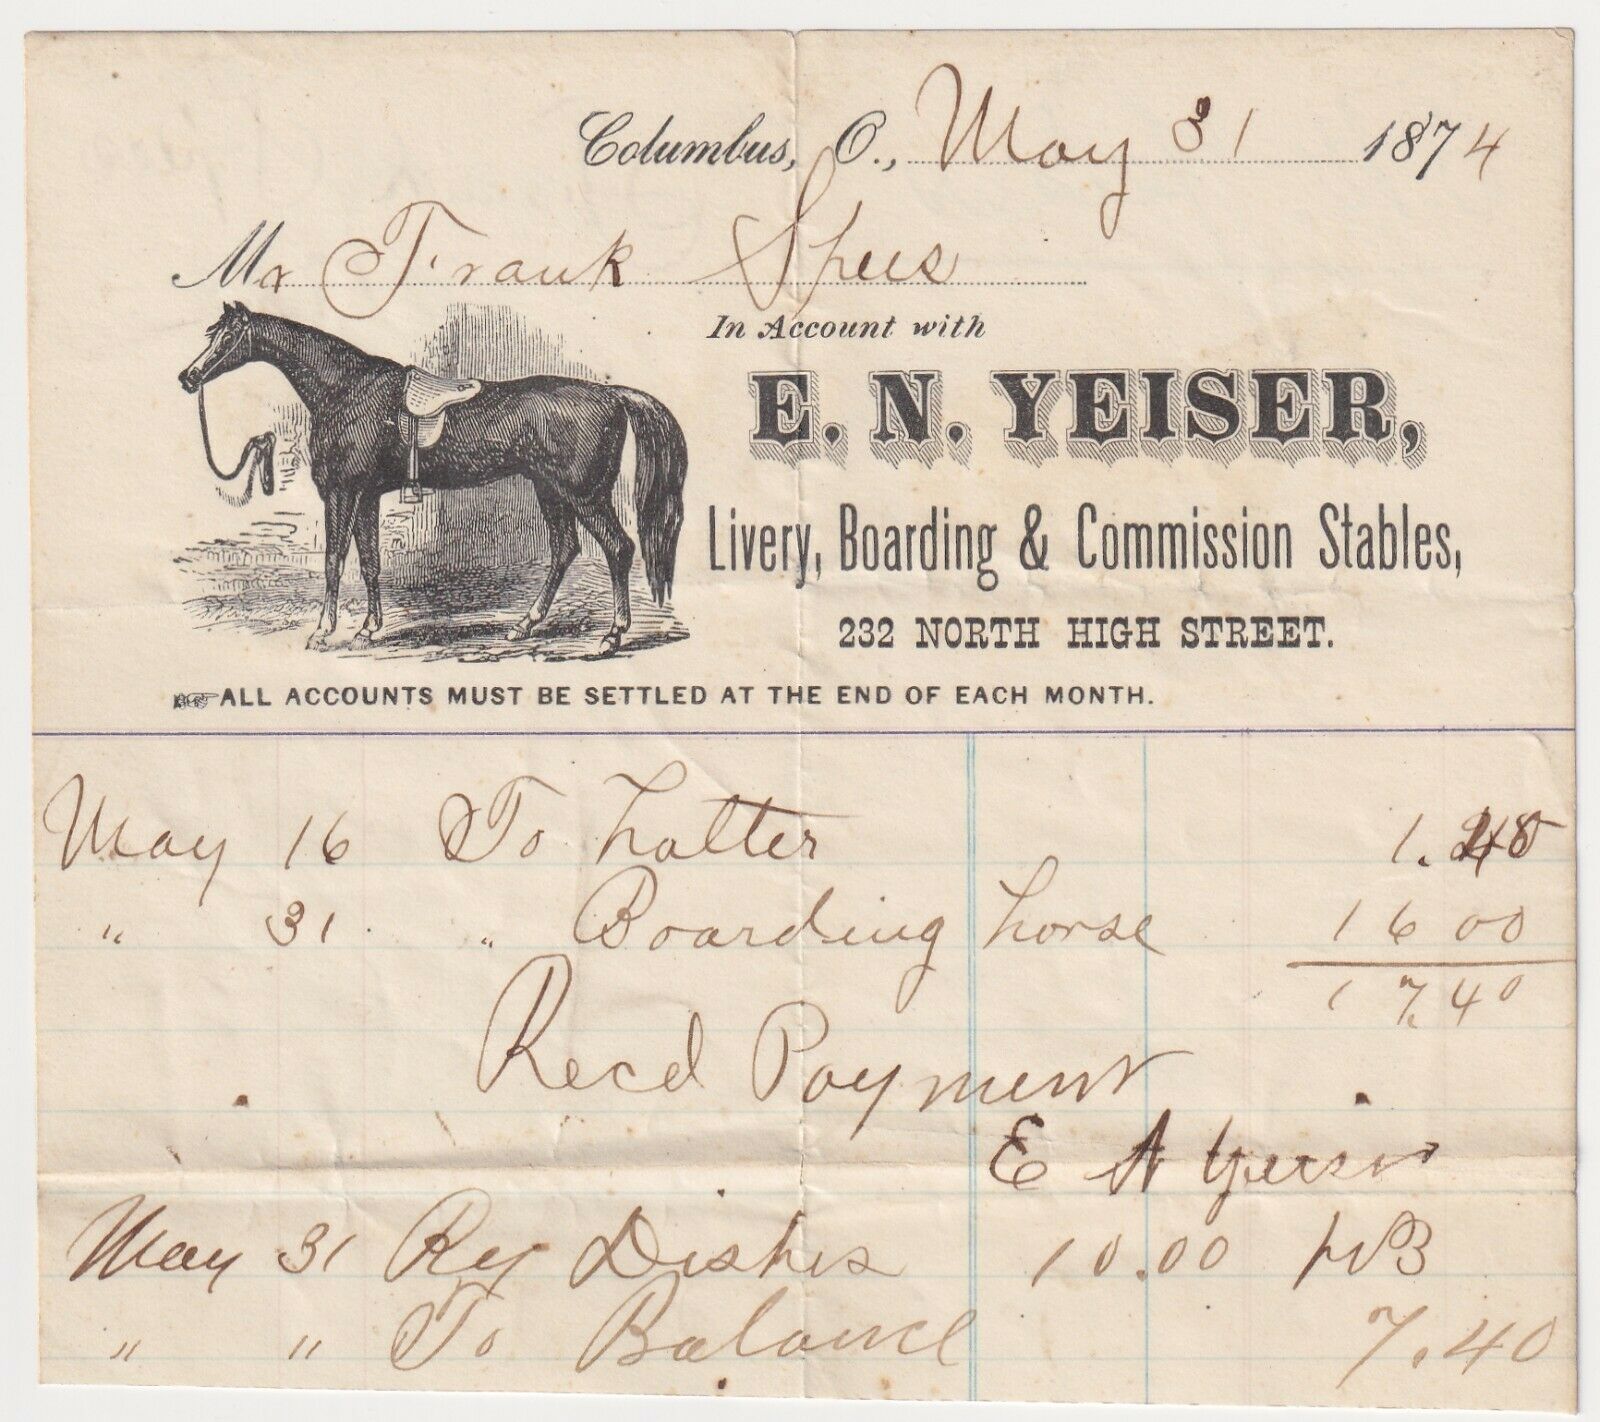 Columbus, O., May 31 1874
Mr Frank Spees
In Account with
E. N. YEISER,
Livery, Boarding & Commission Stables,
232 NORTH HIGH STREET.
ALL ACCOUNTS MUST BE SETTLED AT THE END OF EACH MONTH.
May 16 To halter 1.40
" 31 " Boarding horse 16 00
17.40
Recd Payment
E N Yeiser
May 31 By Dishes 10.00
" " To Balance 7.40